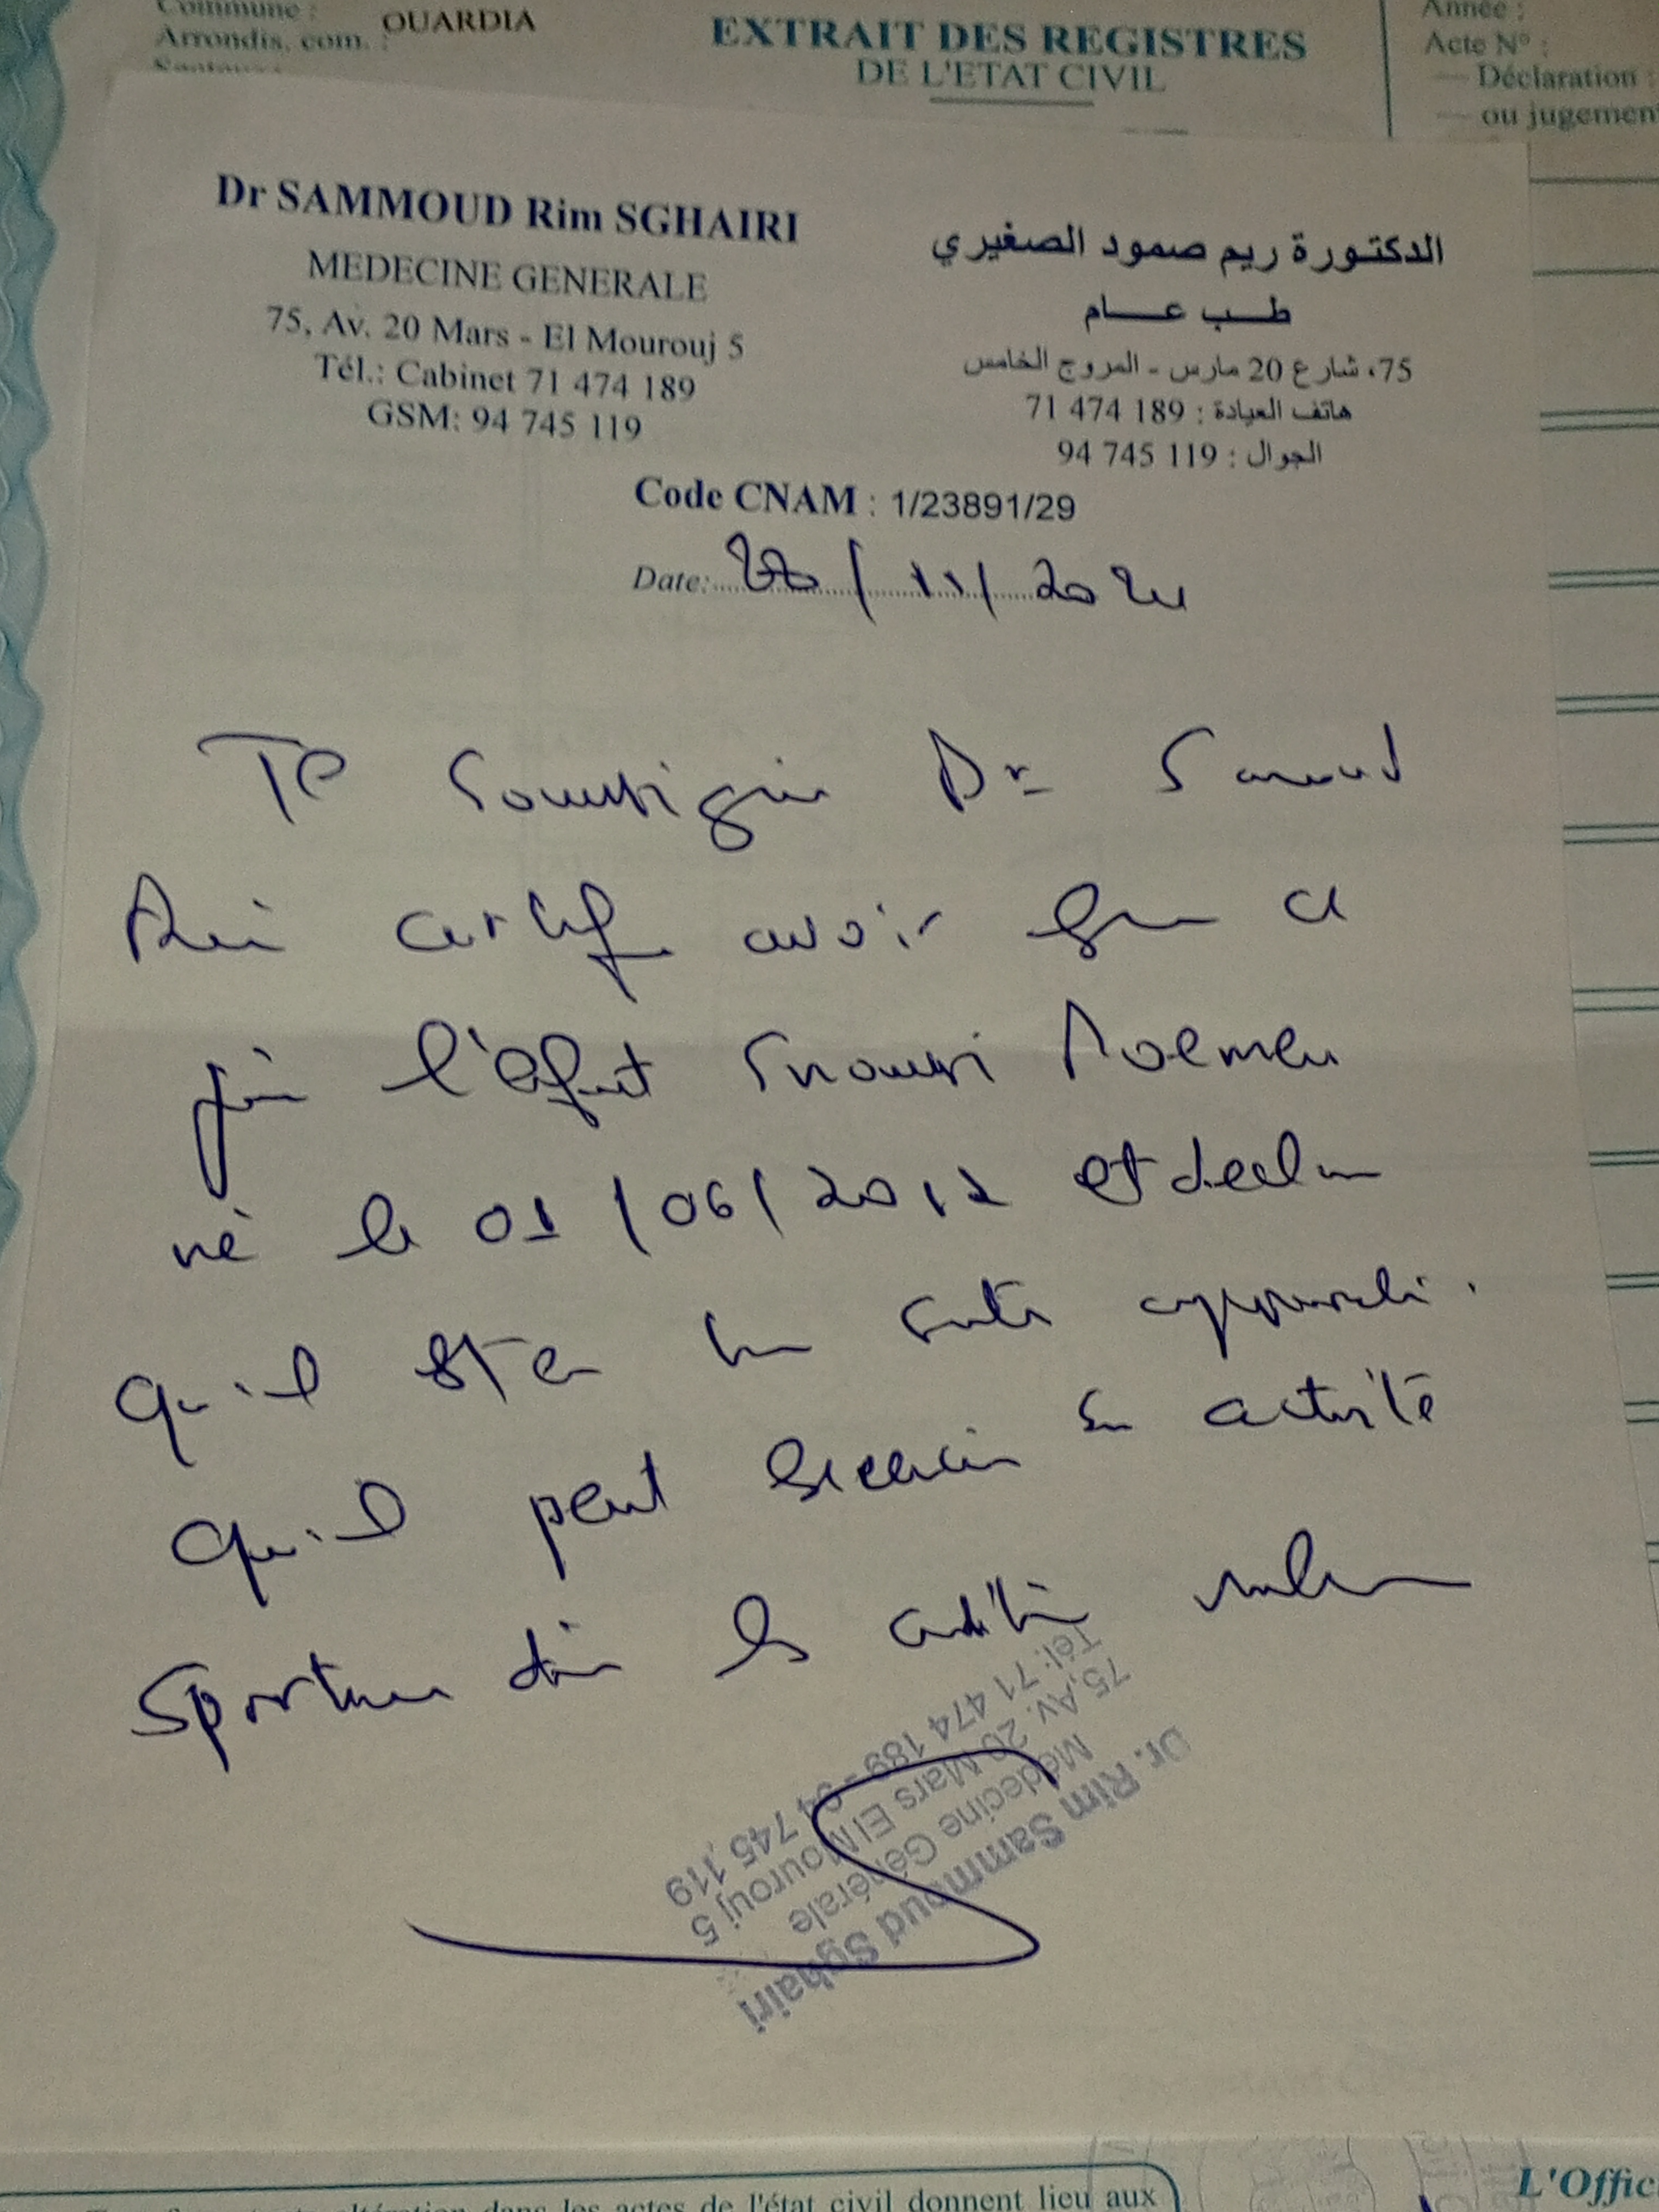 Commune :
OUARDIA
Arrondis. com. :
EXTRAIT DES REGISTRES
DE L'ETAT CIVIL
Année :
Acte N° :
— Déclaration :
— ou jugement
Dr SAMMOUD Rim SGHAIRI
MEDECINE GENERALE
75, Av. 20 Mars - El Mourouj 5
Tél.: Cabinet 71 474 189
GSM: 94 745 119
الدكتورة ريم صمود الصغيري
طب عام
75، شارع 20 مارس - المروج الخامس
هاتف العيادة : 189 474 71
الجوال : 119 745 94
Code CNAM : 1/23891/29
Date: /11/2024
Je soussigné Dr Sammoud
Rim certifie avoir examiné ce
jour l'enfant Snoussi
né le 01/06/2012 et déclare
qu'il est en bonne santé apparente.
qu'il peut exercer son activité
sportive dans les conditions
Dr. Rim Sammoud Sghairi
Médecine Générale
75, Av. 20 Mars El Mourouj 5
Tél: 71 474 189 - 94 745 119
L'Offic
dans les actes de l'état civil donnent lieu aux